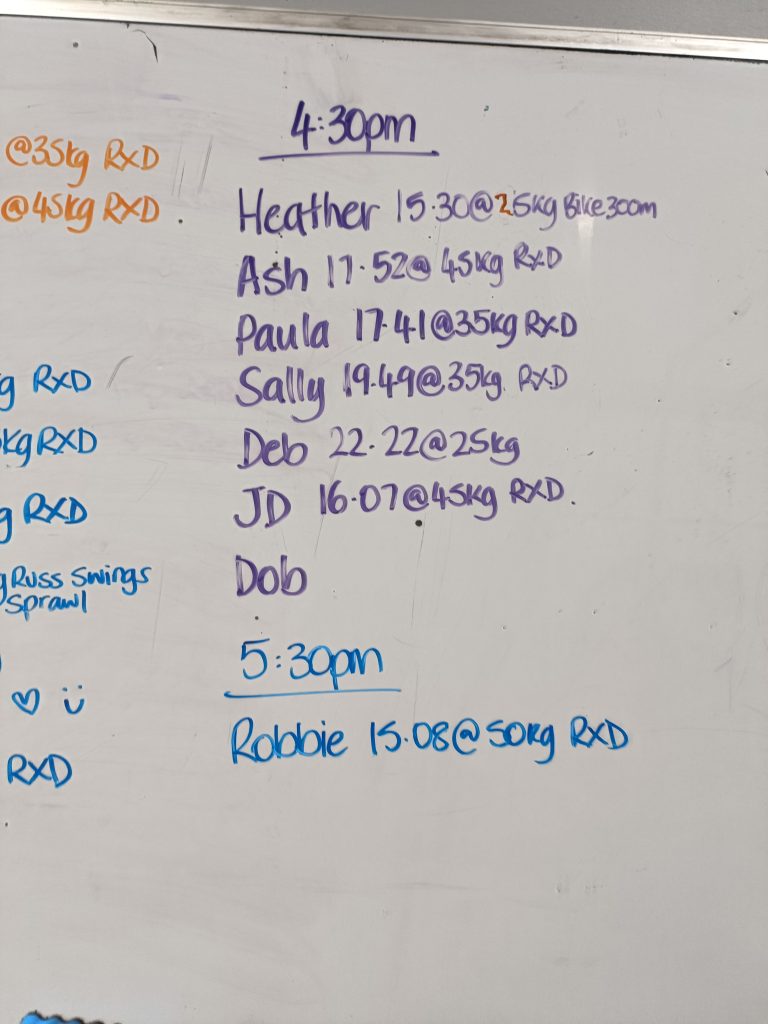 @35kg RXD
@45kg RXD
g RXD
kg RXD
g RXD
g Russ Swings
Sprawl
RXD
4:30pm
Heather 15.30@25kg Bike 300m
Ash 17.52@ 45kg RXD
Paula 17.41@35kg RXD
Sally 19.49@35kg RXD
Deb 22.22@25kg
JD 16.07@45kg RXD.
Dob
5:30pm
Robbie 15.08@50kg RXD